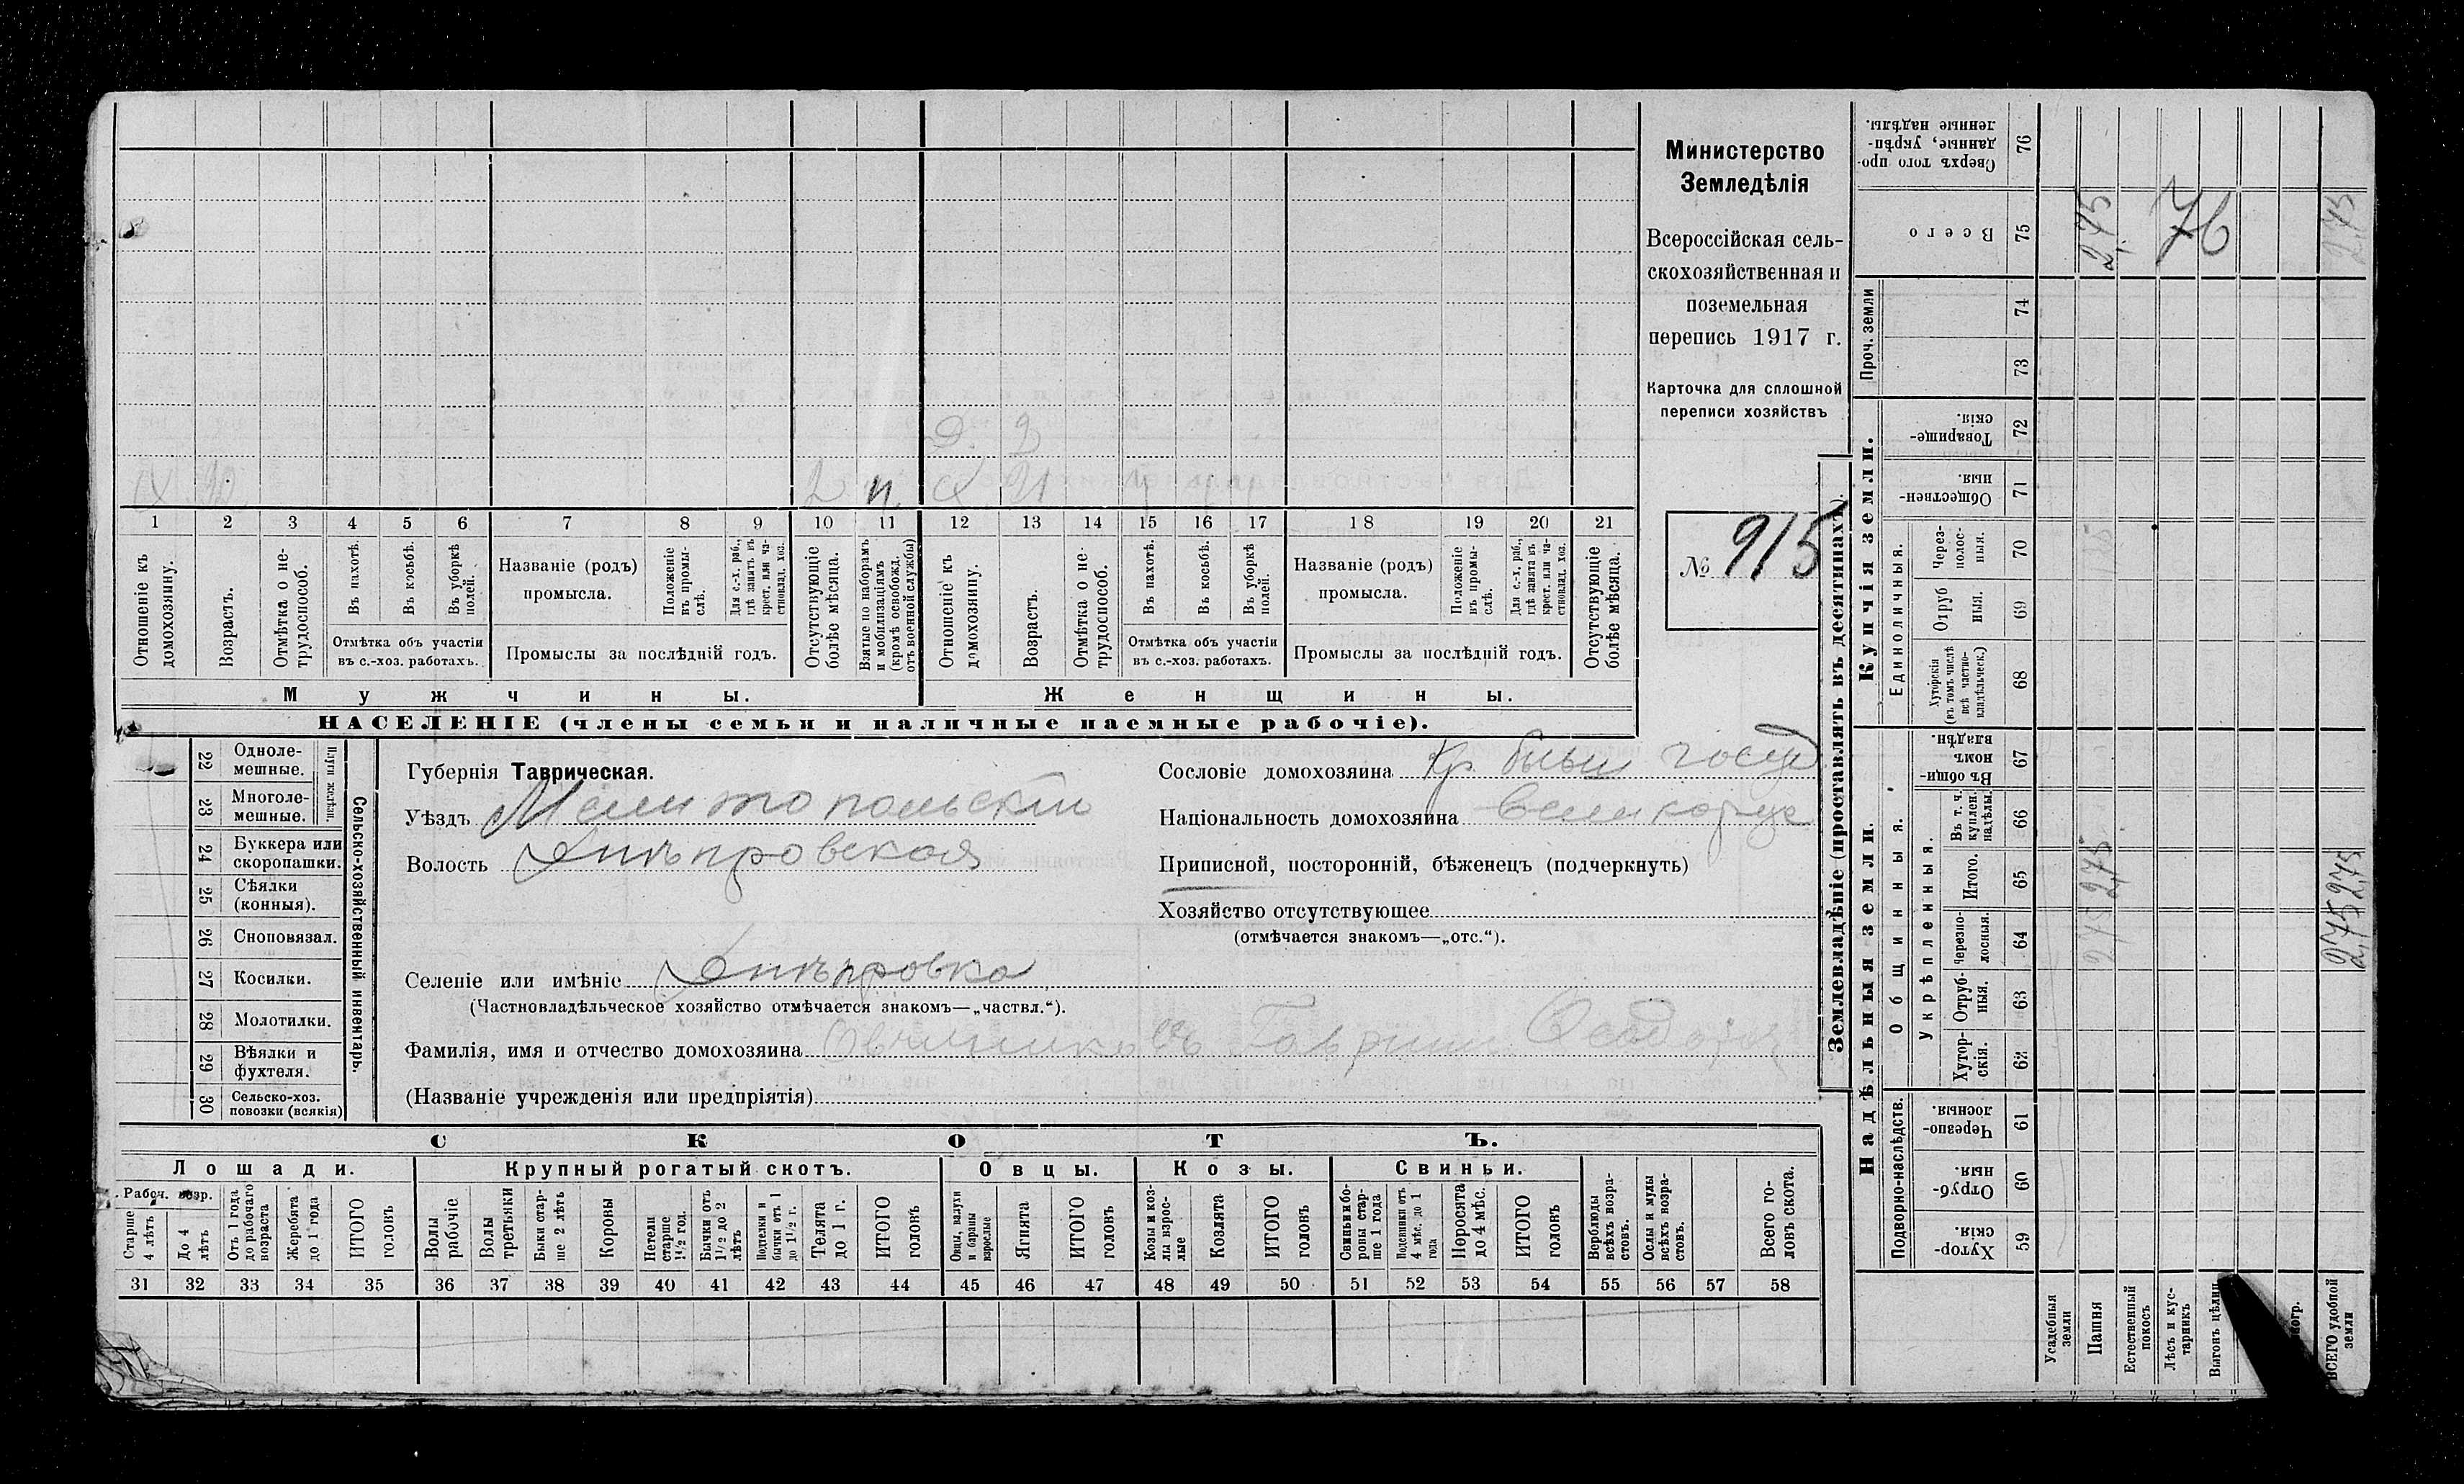 Министерство
Земледѣлія
Всероссійская сель-
скохозяйственная и
поземельная
перепись 1917 г.
Карточка для сплошной
переписи хозяйствъ
№ 915
Д. 2
х 30 2 п. х 21
1 2 3 4 5 6 7 8 9 10 11 12 13 14 15 16 17 18 19 20 21
Отношеніе къ домохозяину.
Возрастъ.
Отмѣтка о не-трудоспособ.
Въ пахотѣ.
Въ косьбѣ.
Въ уборкѣ полей.
Отмѣтка объ участіи
въ с.-хоз. работахъ.
Названіе (родъ)
промысла.
Положеніе въ промы-слѣ.
Для с.-х. раб., гдѣ занятъ въ крест. или ча-стновлад. хоз.
Промыслы за послѣдній годъ.
Отсутствующіе болѣе мѣсяца.
Взятые по наборамъ и мобилизаціямъ (кромѣ освобожд. отъ военной службы)
Отношеніе къ домохозяину.
Возрастъ.
Отмѣтка о не-трудоспособ.
Въ пахотѣ.
Въ косьбѣ.
Въ уборкѣ полей.
Отмѣтка объ участіи
въ с.-хоз. работахъ.
Названіе (родъ)
промысла.
Положеніе въ промы-слѣ.
Для с.-х. раб., гдѣ занята въ крест. или ча-стновлад. хоз.
Промыслы за послѣдній годъ.
Отсутствующіе болѣе мѣсяца.
Мужчины. Женщины.
НАСЕЛЕНІЕ (члены семьи и наличные наемные рабочіе).
Сельско-хозяйственный инвентарь.
Плуги желѣзн.
22 Одноле-мешные.
23 Многоле-мешные.
24 Буккера или скоропашки.
25 Сѣялки (конныя).
26 Сноповязал.
27 Косилки.
28 Молотилки.
29 Вѣялки и фухтеля.
30 Сельско-хоз. повозки (всякія)
Губернія Таврическая.
Уѣздъ Мелитопольскій
Волость Днѣпровская
Селеніе или имѣніе Днѣпровка
(Частновладѣльческое хозяйство отмѣчается знакомъ—„частвл.“).
Фамилія, имя и отчество домохозяина Овчинниковъ Гавриил
(Названіе учрежденія или предпріятія)
Сословіе домохозяина Кр. бывш госуд
Національность домохозяина великорус
Приписной, посторонній, бѣженецъ (подчеркнуть)
Хозяйство отсутствующее
(отмѣчается знакомъ—„отс.“).
СКОТЪ.
Лошади. Крупный рогатый скотъ. Овцы. Козы. Свиньи.
Рабоч. возр.
Старше 4 лѣтъ
До 4 лѣтъ
Отъ 1 года до рабочаго возраста
Жеребята до 1 года
ИТОГО головъ
Волы рабочіе
Волы третьяки
Быки стар-ше 2 лѣтъ
Коровы
Нетели старше 1½ год.
Бычки отъ 1½ до 2 лѣтъ
Подтелки и бычки отъ 1 до 1½ г.
Телята до 1 г.
ИТОГО головъ
Овцы, валухи и бараны взрослые
Ягнята
ИТОГО головъ
Козы и коз-лы взрос-лые
Козлята
ИТОГО головъ
Свиньи и бо-ровы стар-ше 1 года
Подсвинки отъ 4 мѣс. до 1 года
Поросята до 4 мѣс.
ИТОГО головъ
Верблюды всѣхъ возра-стовъ.
Ослы и мулы всѣхъ возра-стовъ.
Всего го-ловъ скота.
31 32 33 34 35 36 37 38 39 40 41 42 43 44 45 46 47 48 49 50 51 52 53 54 55 56 57 58
Землевладѣніе (проставлять въ десятинахъ).
Надѣльныя земли. Купчія земли. Проч. земли
Подворно-наслѣдств. Общинныя. Укрѣпленныя. Единоличныя.
59 Хутор-скія
60 Отруб-ныя.
61 Черезпо-лосныя.
62 Хутор-скія.
63 Отруб-ныя.
64 Черезпо-лосныя.
65 Итого.
66 Въ т. ч. куплен. надѣлы.
67 Въ общи-номъ владѣн.
68 Хуторскія (въ томъ числѣ всѣ частно-владѣльческ.)
69 Отруб ныя.
70 Через-полос-ныя.
71 Обществен-ныя.
72 Товарище-скія.
73
74
75 Всего
76 Сверхъ того про-данные, укрѣп-ленные надѣлы.
Усадебныя земли
Пашня 2,75 2,75 2,75
Естественный покосъ
Лѣсъ и кус-тарникъ
76
Выгонъ цѣлин
ВСЕГО удобной земли 2,75 2,75 2,75